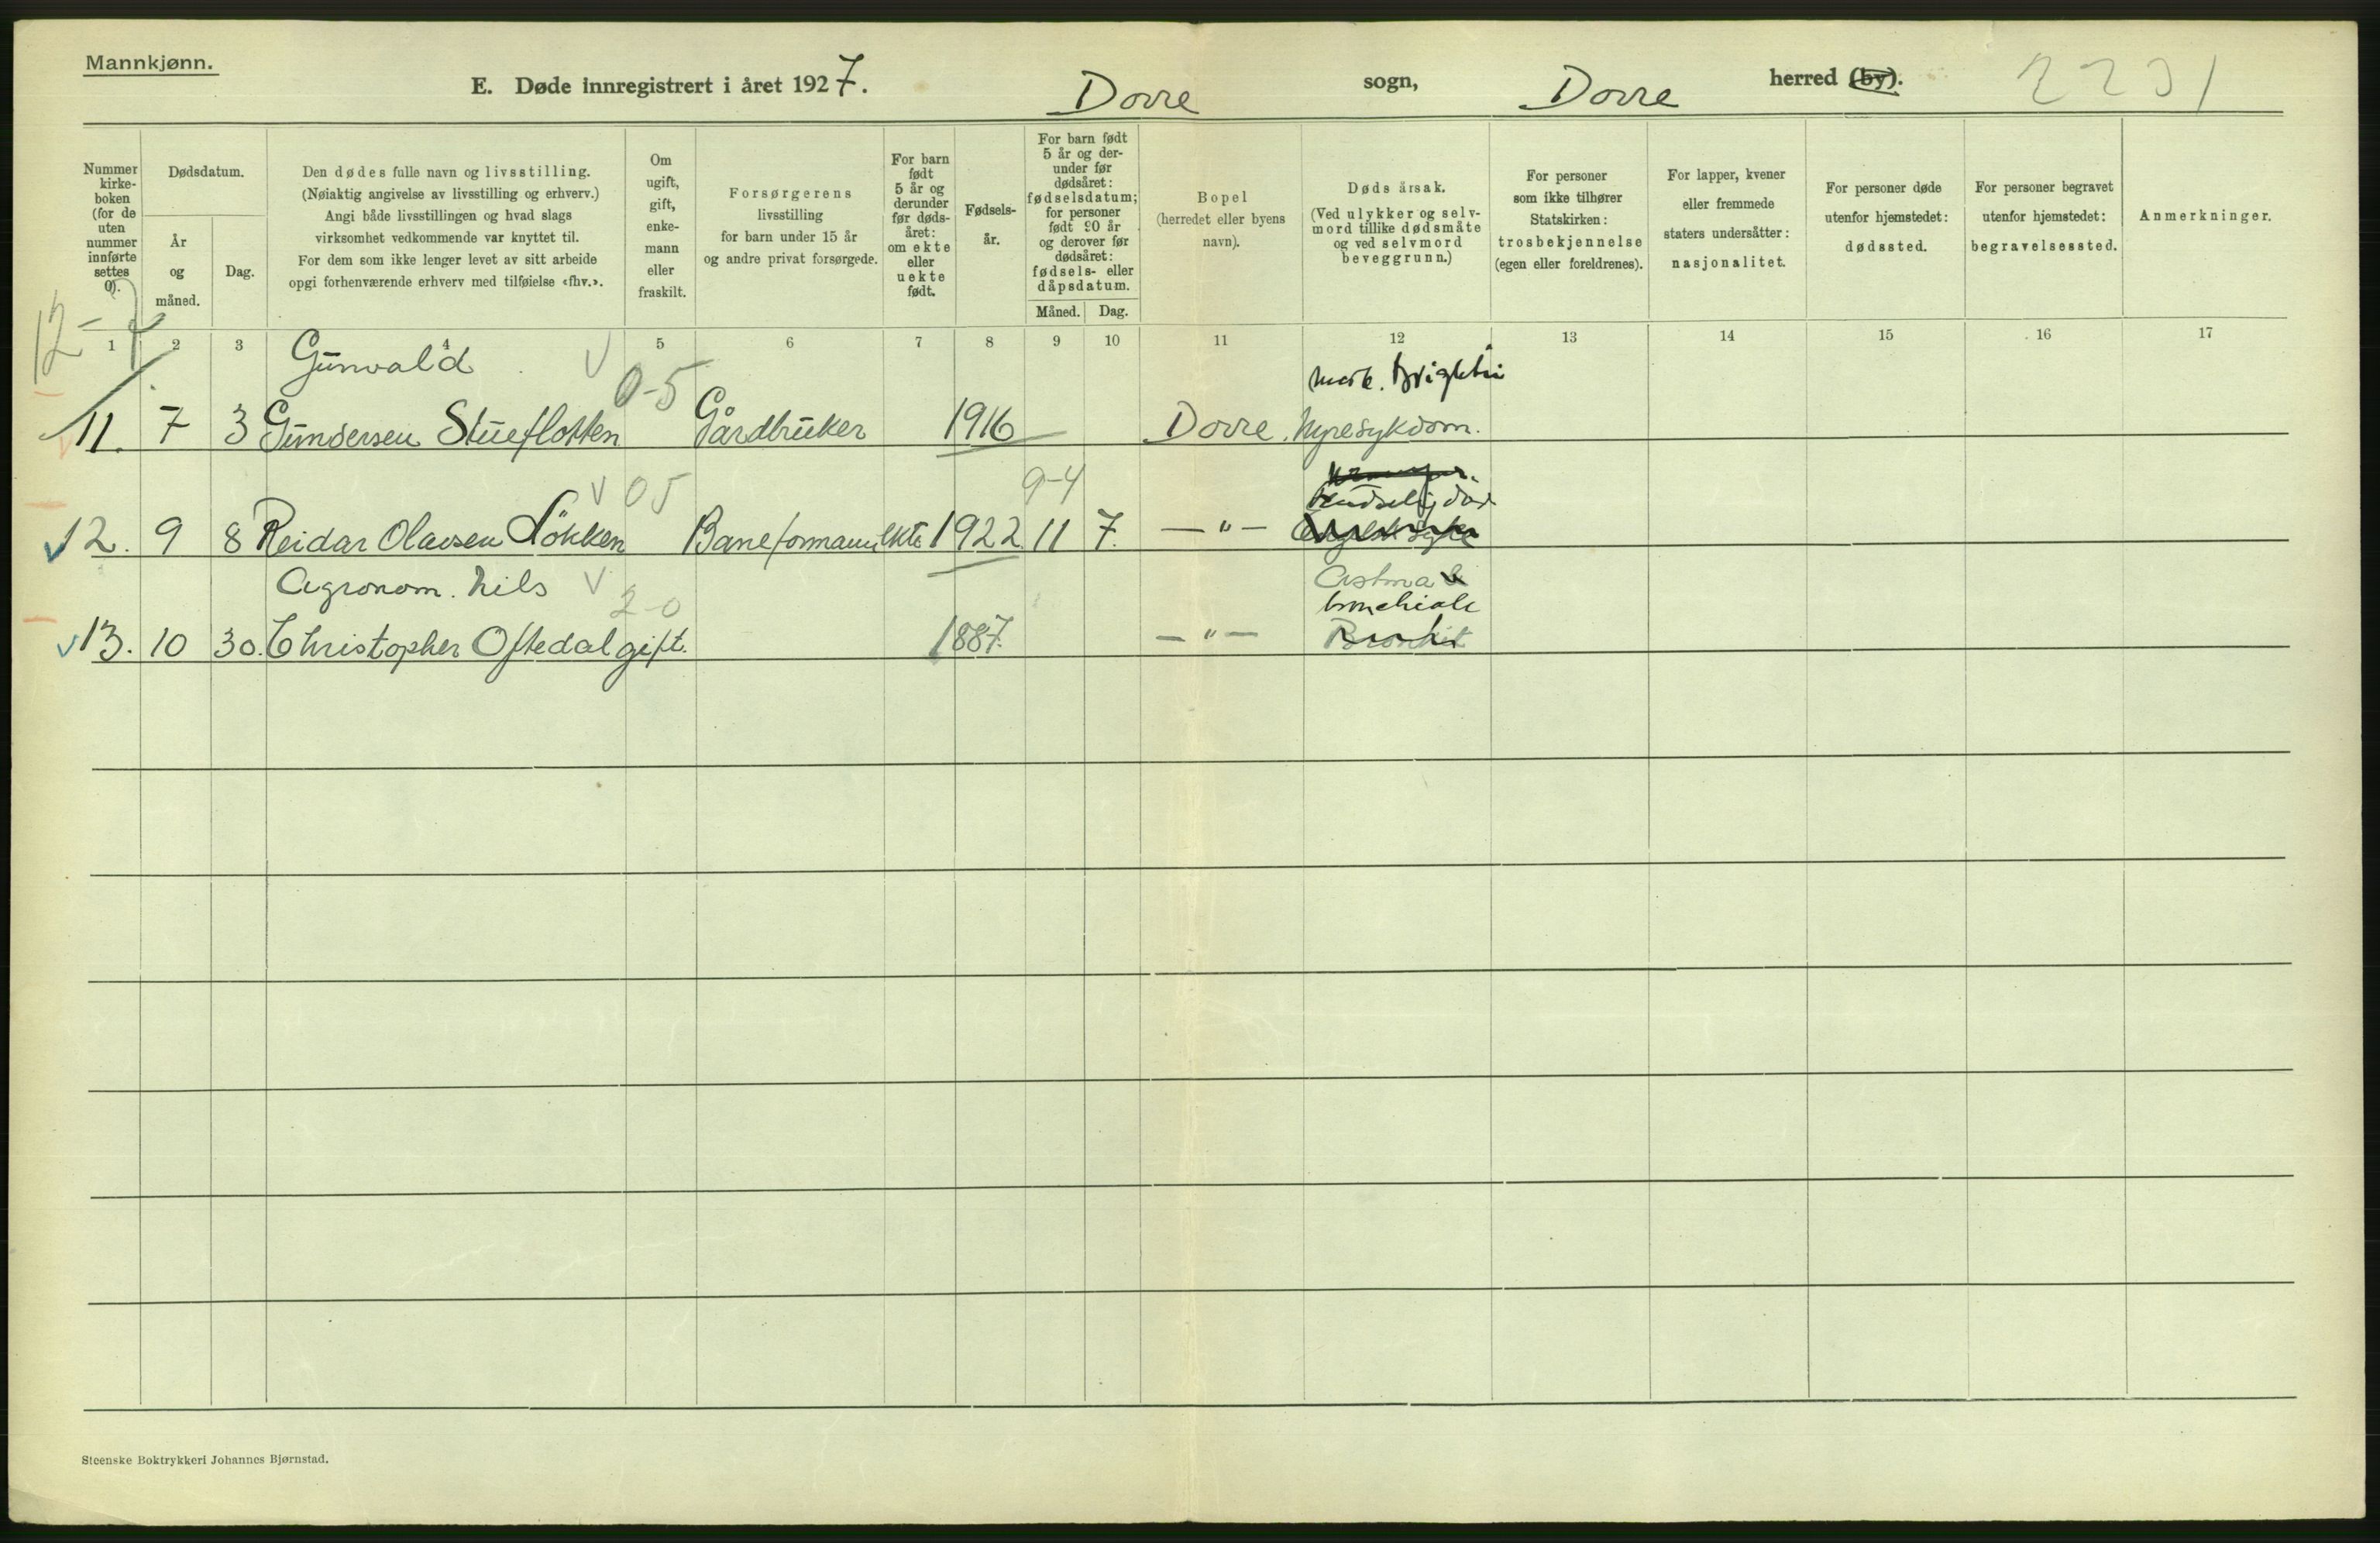 Mannkjønn.
E. Døde innregistrert i året 1927. Dovre sogn, Dovre herred (by). 2231
Nummer
kirke-
boken
(for de
uten
nummer
innførte
settes
0).
Dødsdatum.
År
og
måned.
Dag.
Den dødes fulle navn og livsstilling.
(Nøiaktig angivelse av livsstilling og erhverv.)
Angi både livsstillingen og hvad slags
virksomhet vedkommende var knyttet til.
For dem som ikke lenger levet av sitt arbeide
opgi forhenværende erhverv med tilføielse «fhv.».
Om
ugift,
gift,
enke-
mann
eller
fraskilt.
Forsørgerens
livsstilling
for barn under 15 år
og andre privat forsørgede.
For barn
født
5 år og
derunder
før døds-
året:
om ekte
eller
uekte
født.
Fødsels-
år.
For barn født
5 år og der-
under før
dødsåret:
fødselsdatum;
for personer
født 20 år
og derover før
dødsåret:
fødsels- eller
dåpsdatum.
Måned. Dag.
Bopel
(herredet eller byens
navn).
Døds årsak.
(Ved ulykker og selv-
mord tillike dødsmåte
og ved selvmord
beveggrunn.)
For personer
som ikke tilhører
Statskirken:
trosbekjennelse
(egen eller foreldrenes).
For lapper, kvener
eller fremmede
staters undersåtter:
nasjonalitet.
For personer døde
utenfor hjemstedet:
dødssted.
For personer begravet
utenfor hjemstedet:
begravelsessted.
Anmerkninger.
1 2 3 4 5 6 7 8 9 10 11 12 13 14 15 16 17
12-7
Gunvald 0-5 morb. Brightii
11. 7 3 Gundersen Stueflotten Gårdbruker 1916 Dovre. Nyresykdom.
05 9-4
12. 9 8 Reidar Olavsen Løkken Baneformann ekte 1922 11 7. —"—
Agronom. Nils 2-0 Astma
bronchiale
13. 10 30. Christopher Oftedal gift. 1887. —"— Bronkit
Steenske Boktrykkeri Johannes Bjørnstad.